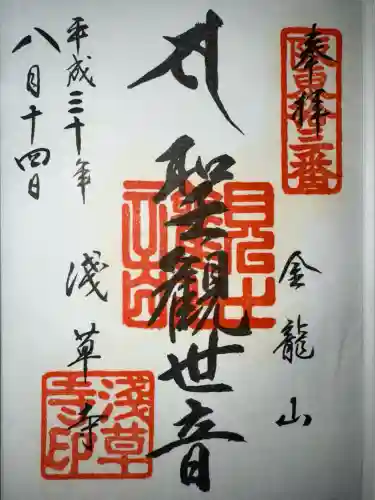 奉拝
坂東十三番
金龍山
聖観世音
浅草寺
浅草寺印
平成三十年
八月十四日